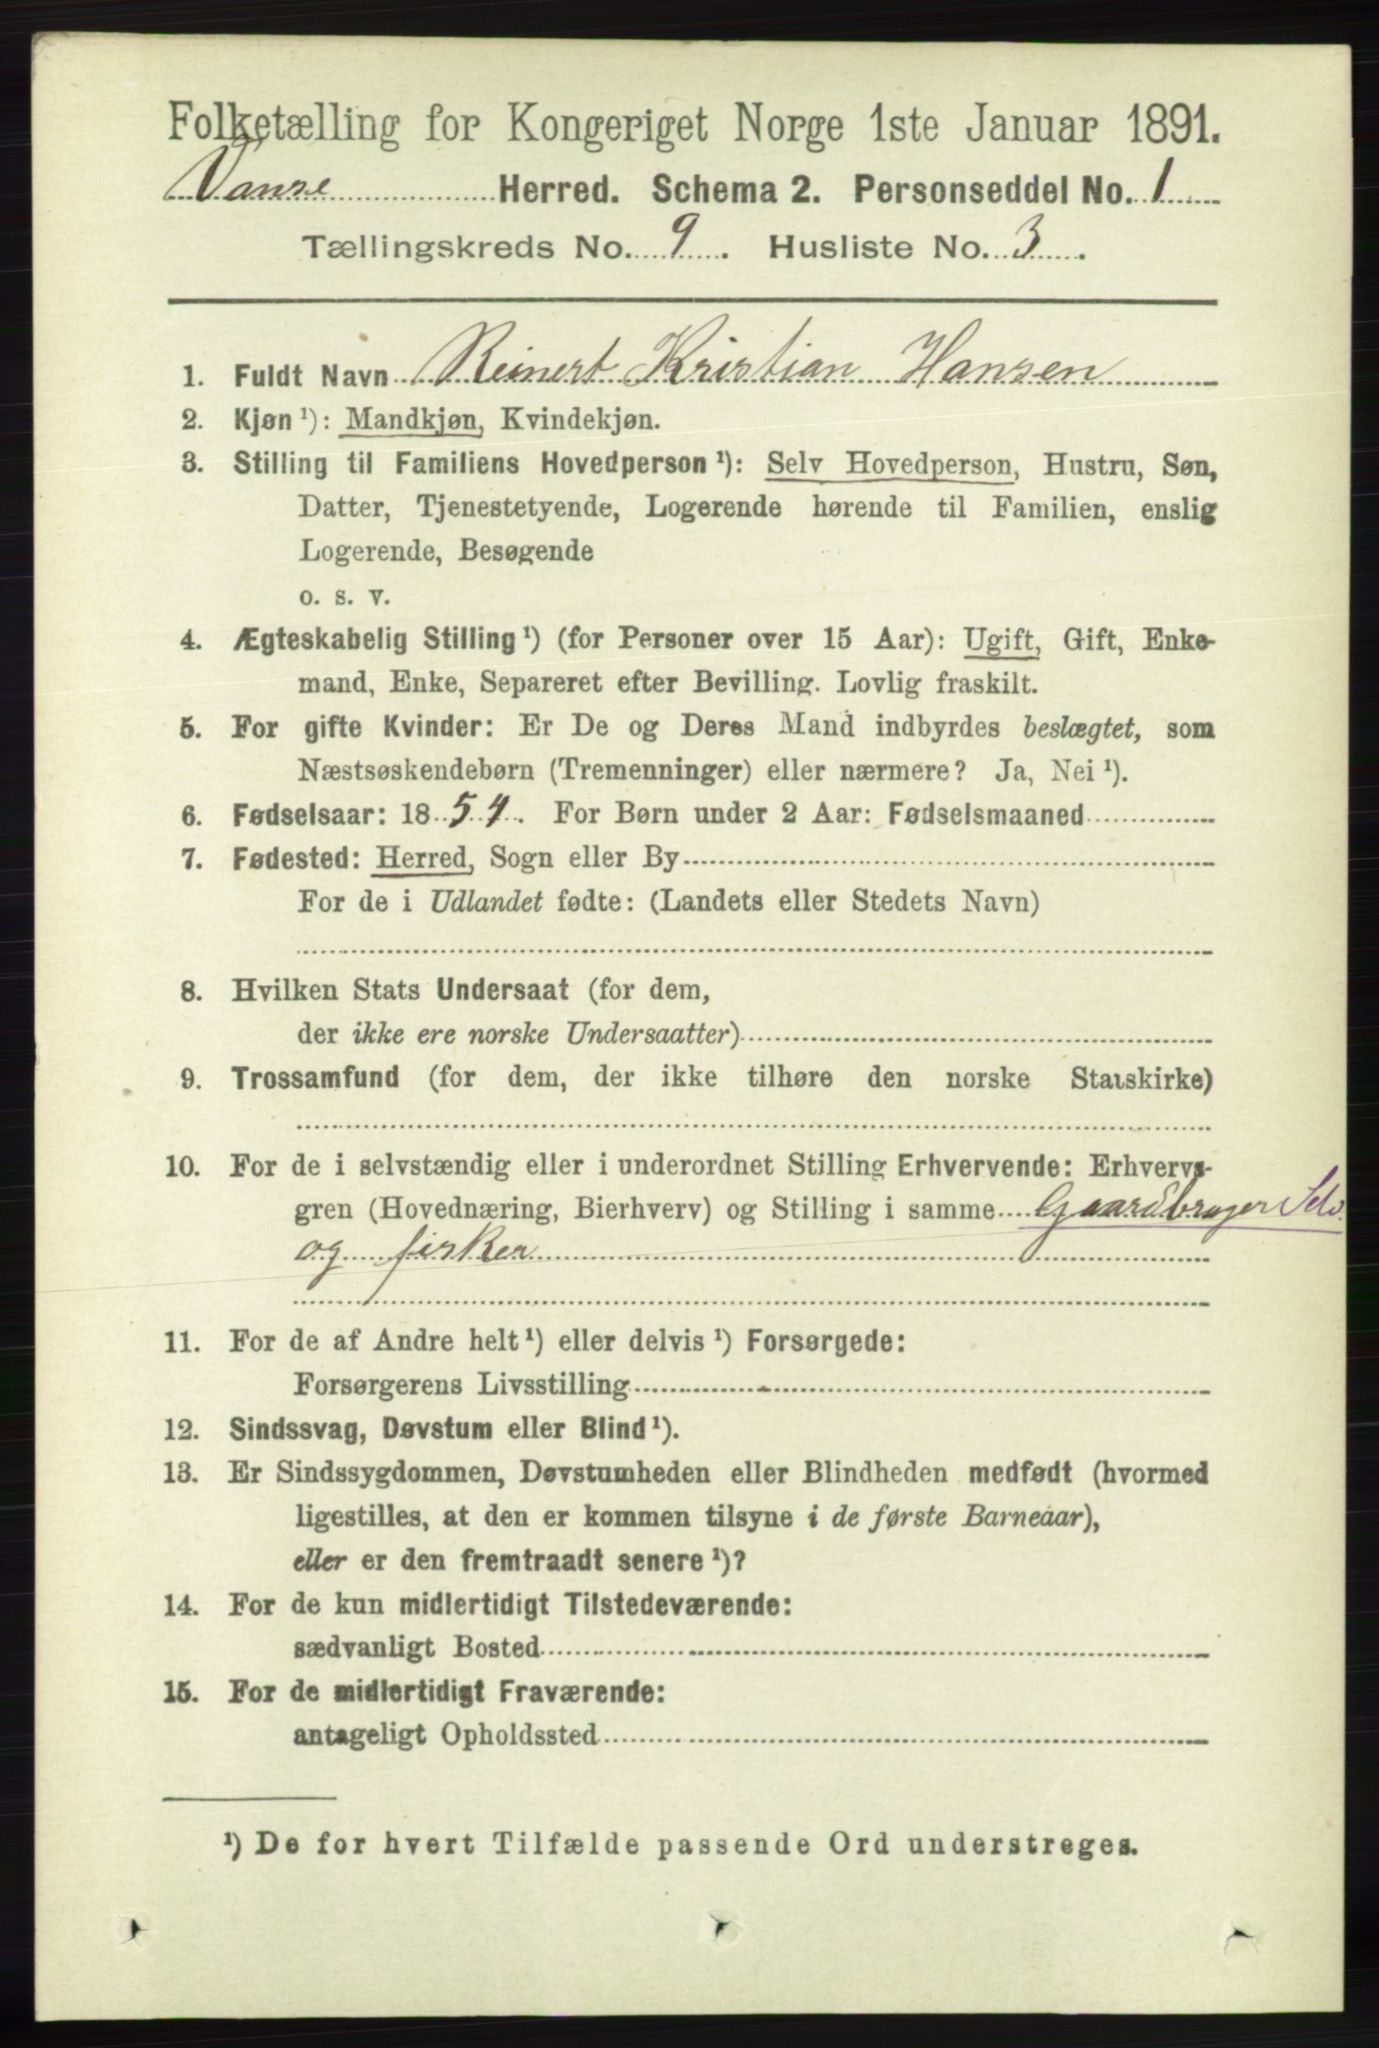 Folketælling for Kongeriget Norge 1ste Januar 1891.
Vanse Herred. Schema 2. Personseddel No. 1
Tællingskreds No. 9. Husliste No. 3.
1. Fuldt Navn Reinert Kristian Hansen
2. Kjøn¹): Mandkjøn, Kvindekjøn.
3. Stilling til Familiens Hovedperson¹): Selv Hovedperson, Hustru, Søn,
Datter, Tjenestetyende, Logerende hørende til Familien, enslig
Logerende, Besøgende
o. s. v.
4. Ægteskabelig Stilling¹) (for Personer over 15 Aar): Ugift, Gift, Enke-
mand, Enke, Separeret efter Bevilling. Lovlig fraskilt.
5. For gifte Kvinder: Er De og Deres Mand indbyrdes beslægtet, som
Næstsøskendebørn (Tremenninger) eller nærmere? Ja, Nei¹).
6. Fødselsaar: 1854. For Børn under 2 Aar: Fødselsmaaned
7. Fødested: Herred, Sogn eller By
For de i Udlandet fødte: (Landets eller Stedets Navn)
8. Hvilken Stats Undersaat (for dem,
der ikke ere norske Undersaatter)
9. Trossamfund (for dem, der ikke tilhøre den norske Statskirke)
10. For de i selvstændig eller i underordnet Stilling Erhvervende: Erhvervs-
gren (Hovednæring, Bierhverv) og Stilling i samme Gaardbruger Selv.
og fisker
11. For de af Andre helt¹) eller delvis¹) Forsørgede:
Forsørgerens Livsstilling
12. Sindssvag, Døvstum eller Blind¹).
13. Er Sindssygdommen, Døvstumheden eller Blindheden medfødt (hvormed
ligestilles, at den er kommen tilsyne i de første Barneaar),
eller er den fremtraadt senere¹)?
14. For de kun midlertidigt Tilstedeværende:
sædvanligt Bosted
15. For de midlertidigt Fraværende:
antageligt Opholdssted
¹) De for hvert Tilfælde passende Ord understreges.